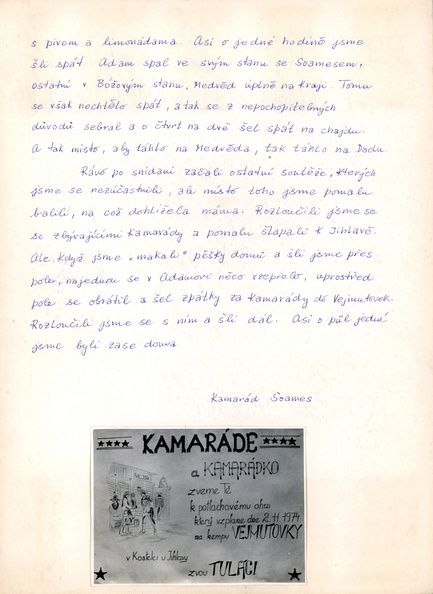 s pivem a limonádama. Asi o jedné hodině jsme
šli spát. Adam spal ve svým stanu se Soamesem,
ostatní v Bóžovým stanu, Medvěd úplně na kraji. Tomu
se však nechtělo spát, a tak se z nepochopitebných
důvodů sebral a o čtvrt na dvě šel spát na chajdu.
A tak místo, aby táhlo na Medvěda, tak táhlo na Dadu.
Ráno po snídani začali ostatní soutěže, kterých
jsme se nezúčastnili, ale místo toho jsme pomalu
balili, na což dohlížela máma. Rozloučili jsme se
se zbývajícími kamarády a pomalu šlapali k Jihlavě.
Ale když jsme „makali" pěšky domů a šli jsme přes
pole, najednou se v Adamovi něco vzepřelo, uprostřed
pole se obrátil a šel zpátky za kamarády do Vejmutovek.
Rozloučili jsme se s ním a šli dál. Asi o půl jedné
jsme byli zase doma.
Kamarád Soames
KAMARÁDE
a KAMARÁDKO
zveme Tě
k potlachovému ohni
který vzplane dne 2. 11. 1974
na kempu VEJMUTOVKY
v Kostelci u Jihlavy
zvou TULÁCI